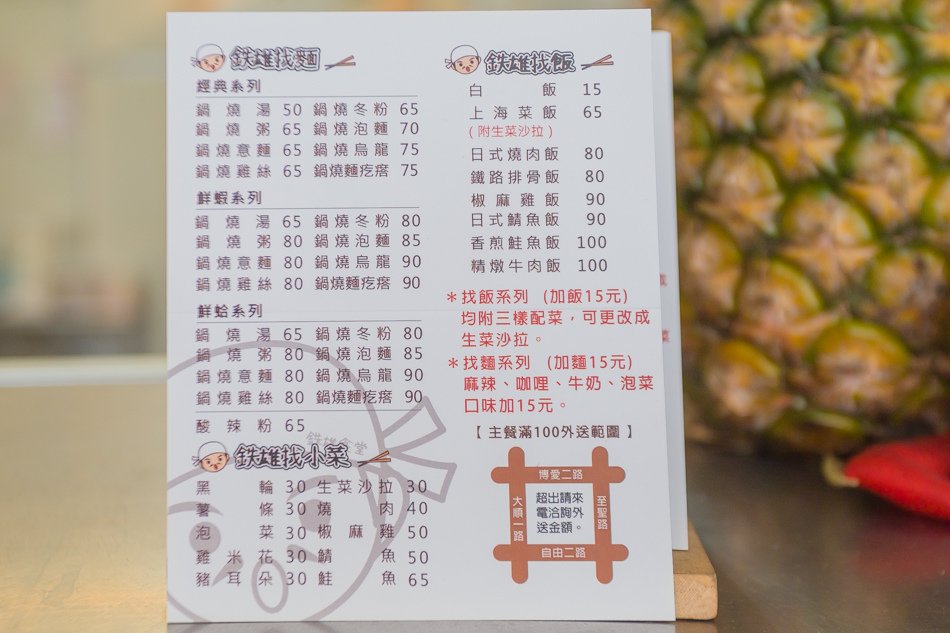 鉄雄找麵
經典系列
鍋燒湯 50 鍋燒冬粉 65
鍋燒粥 65 鍋燒泡麵 70
鍋燒意麵 65 鍋燒烏龍 75
鍋燒雞絲 65 鍋燒麵疙瘩 75
鮮蝦系列
鍋燒湯 65 鍋燒冬粉 80
鍋燒粥 80 鍋燒泡麵 85
鍋燒意麵 80 鍋燒烏龍 90
鍋燒雞絲 80 鍋燒麵疙瘩 90
鮮蛤系列
鍋燒湯 65 鍋燒冬粉 80
鍋燒粥 80 鍋燒泡麵 85
鍋燒意麵 80 鍋燒烏龍 90
鍋燒雞絲 80 鍋燒麵疙瘩 90
酸辣粉 65
鉄雄食堂
鉄雄找小菜
黑輪 30 生菜沙拉 30
薯條 30 燒肉 40
泡菜 30 椒麻雞 50
雞米花 30 鯖魚 50
豬耳朵 30 鮭魚 65
鉄雄找飯
白飯 15
上海菜飯 65
(附生菜沙拉)
日式燒肉飯 80
鐵路排骨飯 80
椒麻雞飯 90
日式鯖魚飯 90
香煎鮭魚飯 100
精燉牛肉飯 100
*找飯系列 (加飯15元)
均附三樣配菜,可更改成
生菜沙拉。
*找麵系列 (加麵15元)
麻辣、咖哩、牛奶、泡菜
口味加15元。
【 主餐滿100外送範圍 】
博愛二路
大順一路
超出請來
電洽詢外
送金額。
至聖路
自由二路